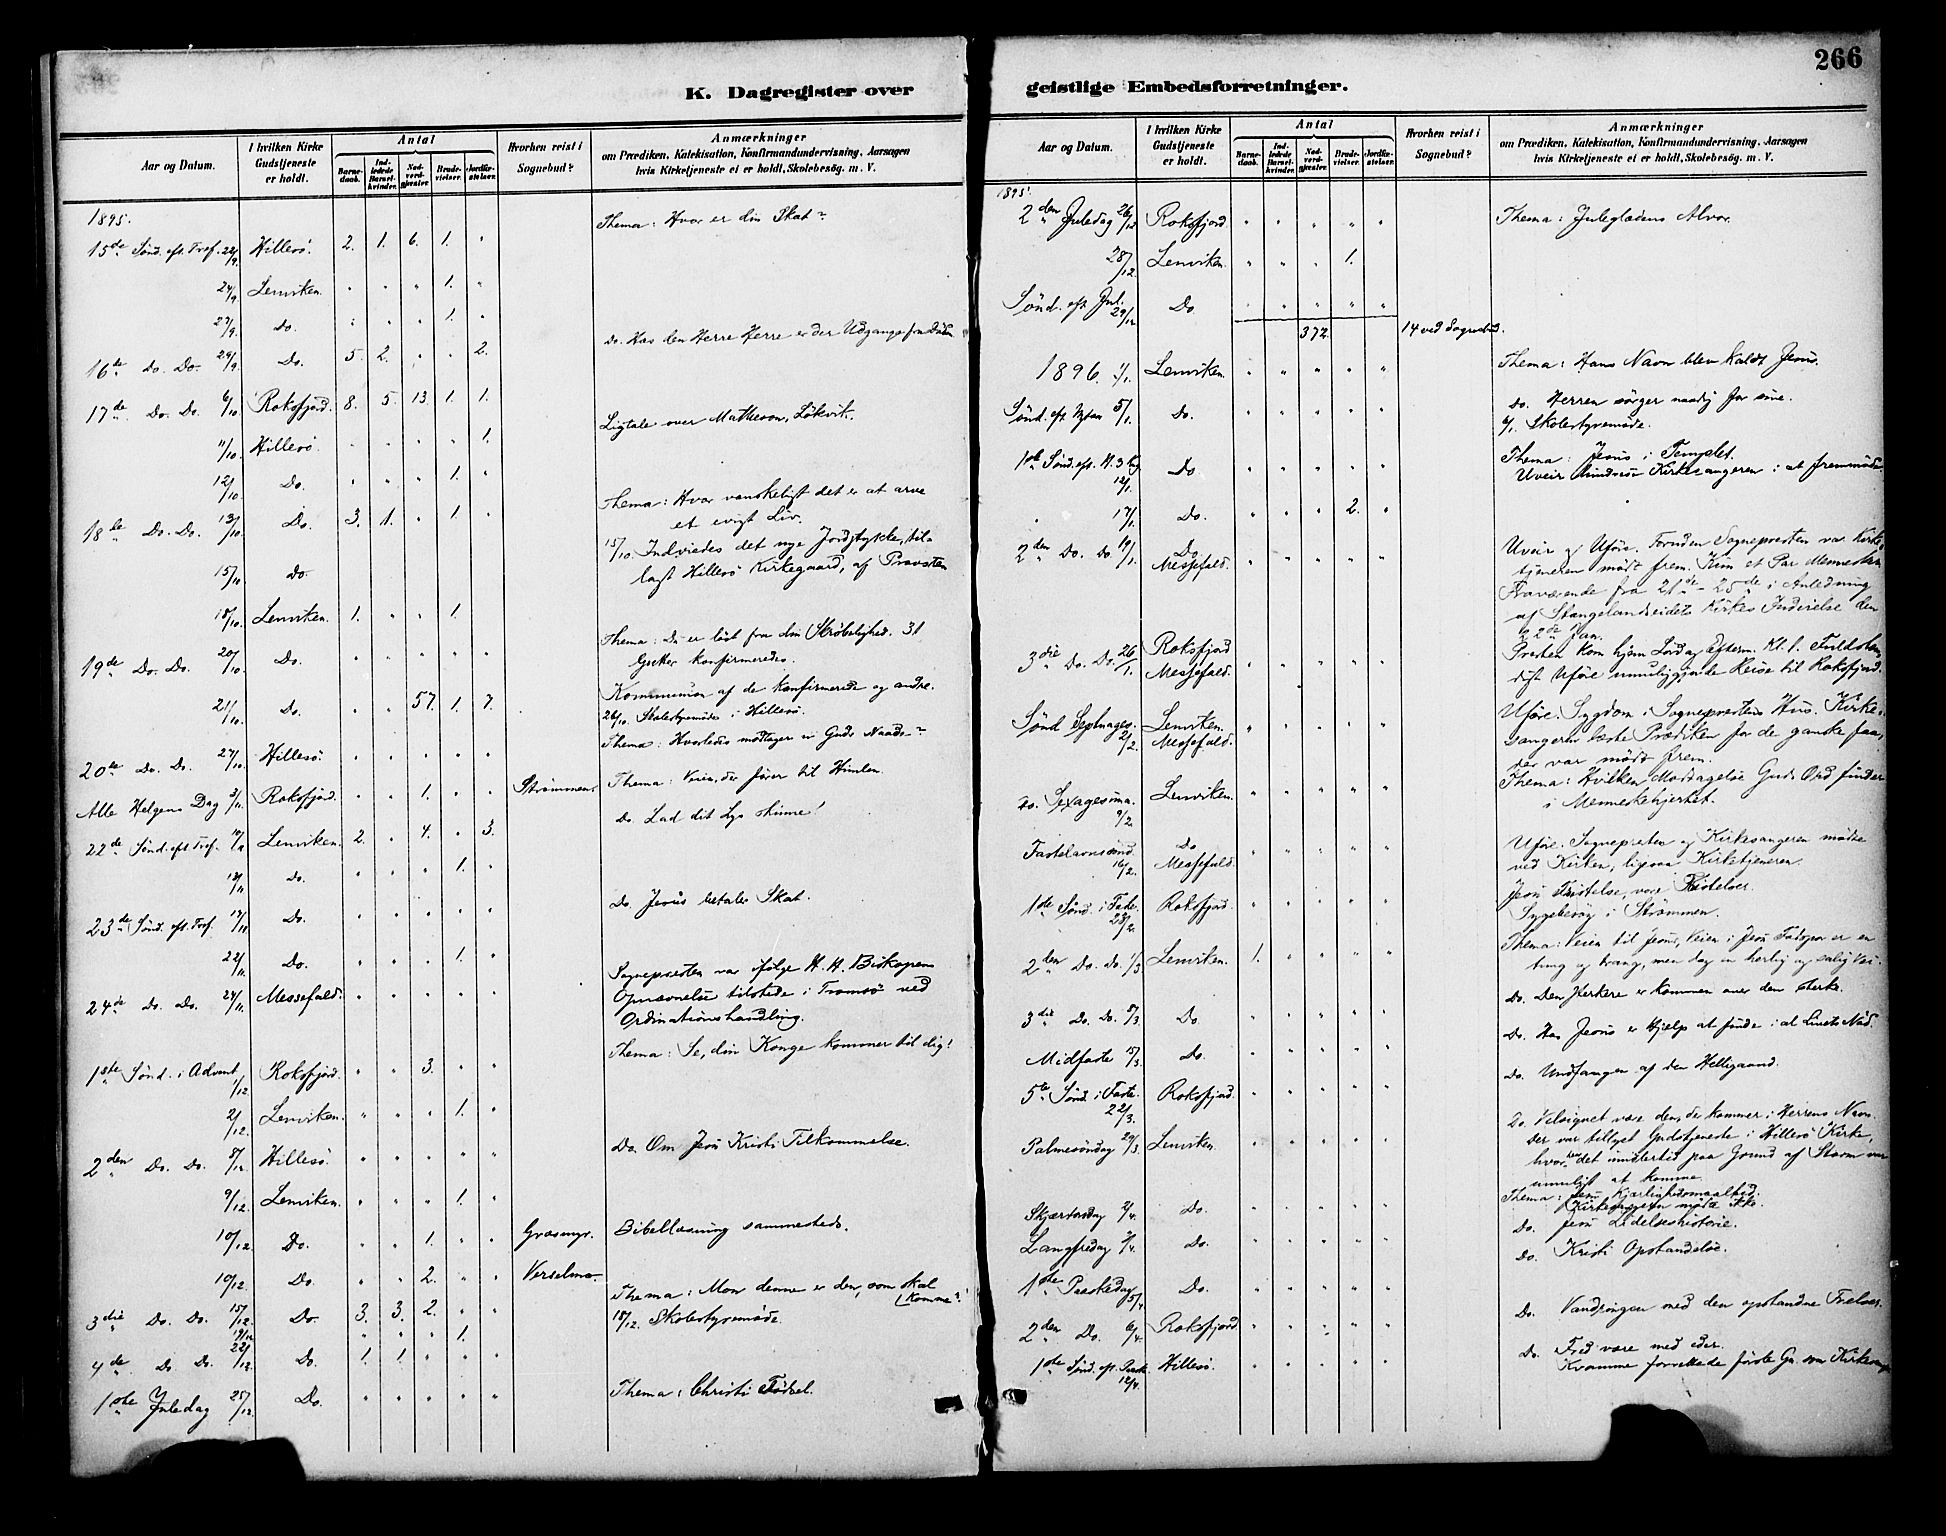 266
K. Dagregister over
geistlige Embedsforretninger.
Aar og Datum.
I hvilken Kirke Gudstjeneste er holdt.
Antal
Barnedaab.
Indledede Barselkvinder.
Nadverdgjester.
Brudevielser.
Jordfæstelser.
Hvorhen reist i Sognebud?
Anmærkninger
om Prædiken, Katekisation, Konfirmandundervisning, Aarsagen
hvis Kirketjeneste ei er holdt, Skolebesög. m. V.
1895. Thema: Hvor er din Skat?
15de Sønd. eft. Tref. 22/9. Hillesö. 2. 1. 6. 1. "
24/9. Lenviken. " " " 1. "
27/9. Do. " " " 1. "
Do. Hos den Herre Herre er der Udgange fra Døden
16de Do. Do. 29/9. Do. 5. 2. " " 2.
17de Do. Do. 6/10. Roksfjord. 8. 5. 13. 1. 1.
Ligtale over Lökvik.
11/10. Hillesö. " " " " 1.
12/10. Do. " " " 1. "
18de Do. Do. 13/10. Do. 3. 1. " 1. "
Thema: Hvor vanskeligt det er at arve
et evigt Liv.
15/10. Do.
15/10. Indviedes det nye Jordstykke, til-
lagt Hillesö Kirkegaard, af Provsten
18/10. Lenviken. 1. " " 1.
19de Do. Do. 20/10. Do. " " " " "
Thema: Du er löst fra din Skröbelighed. 31
konfirmeredes.
21/10. Do. " " 57. 1. 7.
Kommunion af de konfirmerede og andre.
26/10. Skolestyremöde i Hillesö.
20de Do. Do. 27/10. Hillesö. " " " " "
Thema: Hvorledes modtager vi Guds Naade?
Alle Helgens Dag 3/11. Roksfjord. " " 1. " " Strömmen.
Thema: Veien, der fører til Himlen.
22de Sönd. eft. Tref. 10/11. Lenviken. 2. " 4. " 3.
Do. Lad dit Lys skinne!
13/11. Do. " " " 1. "
23de Sönd. eft. Tref. 17/11. Do. " " " " "
Do. Jesus betaler Skat.
22/11. Do. " " " 1. "
24de Do. Do. 24/11. Messefald. " " " " "
Sognepresten var ifølge H. H. Biskopens
tilstede i Tromsö ved
Ordinationshandling.
1ste Sönd. i Advent 1/12. Roksfjord. " " 3. " "
Thema: Se, din Konge kommer til dig!
2/12. Lenviken. " " " 1. "
2den Do. Do. 8/12. Hillesö. " " " " "
Do. Om Jesu Kristi Tilkommelse.
9/12. Lenviken. " " " 1. "
10/12. Do. " " 1. " " Græsmyr.
Bibellæsning sammesteds.
10/12. Do. " " 2. " "
3die Do. Do. 15/12. Do. 3. 3. 2. " "
Thema: Mon denne er den, som skal
komme?
18/12. Skolestyremöde.
19/12. " " " 1.
4de Do. Do. 22/12. Do. 1. 1. " " "
1ste Juledag 25/12. Do. " " " " "
Thema: Christi Fødsel.
Aar og Datum.
I hvilken Kirke Gudstjeneste er holdt.
Antal
Barnedaab.
Indledede Barselkvinder.
Nadverdgjester.
Brudevielser.
Jordfæstelser.
Hvorhen reist i Sognebud?
Anmærkninger
om Prædiken, Katekisation, Konfirmandundervisning, Aarsagen
hvis Kirketjeneste ei er holdt, Skolebesög. m. V.
1895.
2den Juledag 26/12 Roksfjord " " " " "
Thema: Juleglædens Alvor.
28/12. Lenviken. " " " 1.
Sönd. eft. Jul. 29/12 Do. " " " " "
372. 14 ved Sognebud.
1896. 1/1. Lenviken. " " " " "
Thema: Hans Navn blev kaldt Jesus.
Sönd. eft. Nytaar 5/1. Do. " " " " "
Do. Herren sörger naadig for sine.
6/1. Skolestyremöde.
1ste Sönd. eft. H. 3 Kg. 12/1. Do. " " " " "
Thema: Jesus i Templet.
Uveir hindrede Kirkesangeren i at fremmöde.
17/1. Do. " " " 2. "
2den Do. Do. 19/1. Do. Messefald. " " " " "
Uveir og Uföre. Foruden Sognepresten var Kirke-
tjeneren mödt frem. Kun et Par Mennesker.
Fraværende fra 21de - 25de i Anledning
af Stangelandseidets Kirkes Indvielse den
22de Jan.
3die Do. Do. 26/1. Roksfjord Messefald.
Presten kom hjem Lördag Efterm. Kl. 1. Fuldstæn-
digt Uföre umuliggjorde Reise til Roksfjord.
Sönd Septuages. 2/2. Lenviken. Messefald. " " " "
Uföre. Sygdom i Sognepresten Hus. Kirke-
sangeren læste Prædiken for de ganske faa,
der var mödt frem.
Do. Sexagesima. 9/2. Lenviken. " " " " "
Thema: Hvilken Modtagelse Guds Ord finder
i Menneskehjertet.
Fastelavnssönd. 16/2. Do Messefald. " " " " "
Uföre. Sognepresten og Kirkesangeren mödte
ved Kirken, ligesaa Kirketjeneren.
1ste Sönd. i Faste. 23/2. Roksfjord. " " " " "
Jesu Fristelse, vore Fristelser.
Sygebesög i Strömmen.
2den Do. Do. 1/3 Lenviken. 1. " " " "
Thema: Veien til Jesus, Veien i Jesu Fodspor er en
tung og trang, men dog en herlig og salig Vei.
3die Do. Do. 8/3. Do. " " " " "
Do. Den stærkere er kommen over den stærke.
Midfaste 15/3. Do. " " " " "
Do. Hos Jesus er Hjælp at finde i al Livets Nöd.
5te Sönd. i Faste. 22/3. Roksfjord. " " " " "
Do. Undfangen af den Helligaand.
Palmesöndag 29/3. Lenviken " " " " "
Do. Velsignet være den, der kommer i Herrens Navn.
Der var tillyst Gudstjeneste i Hillesö Kirke,
hvor det imidlertid paa Grund af Storm var
umuligt at komme.
Skjærtorsdag 2/4. Do. " " " " "
Thema: Jesu Kjærlighedsmaaltid.
Kirkesangeren mödte ikke.
Langfredag 3/4. Do. " " " " "
Do. Jesu Lidelseshistorie.
1ste Paaskedag 5/4 Do. " " " " "
Do. Kristi Opstandelse.
2den Do. 6/4. Roksfjord " " " " "
Do. Vandringen med den opstandne Frelser.
1ste Sönd. eft. Paaske 12/4. Hillesö. " " " " "
Do. Fred være med eder.
forrettede förste G. som Kirkesanger